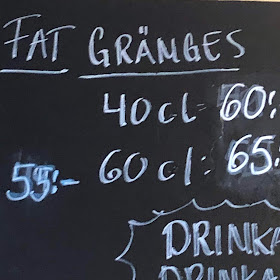 FAT GRÄNGES
40cl: 60:
55:- 60cl: 65:
DRINKA
DRINKA